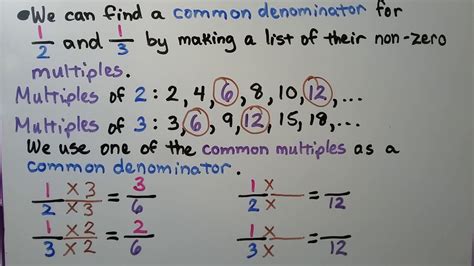 •We can find a common denominator for
1/2 and 1/3 by making a list of their non-zero
multiples.
Multiples of 2: 2, 4, 6, 8, 10, 12, ...
Multiples of 3: 3, 6, 9, 12, 15, 18, ...
We use one of the common multiples as a
common denominator.
1/2 × 3/× 3 = 3/6    1/2 ×_/× = _/12
1/3 × 2/× 2 = 2/6    1/3 ×_/× = _/12